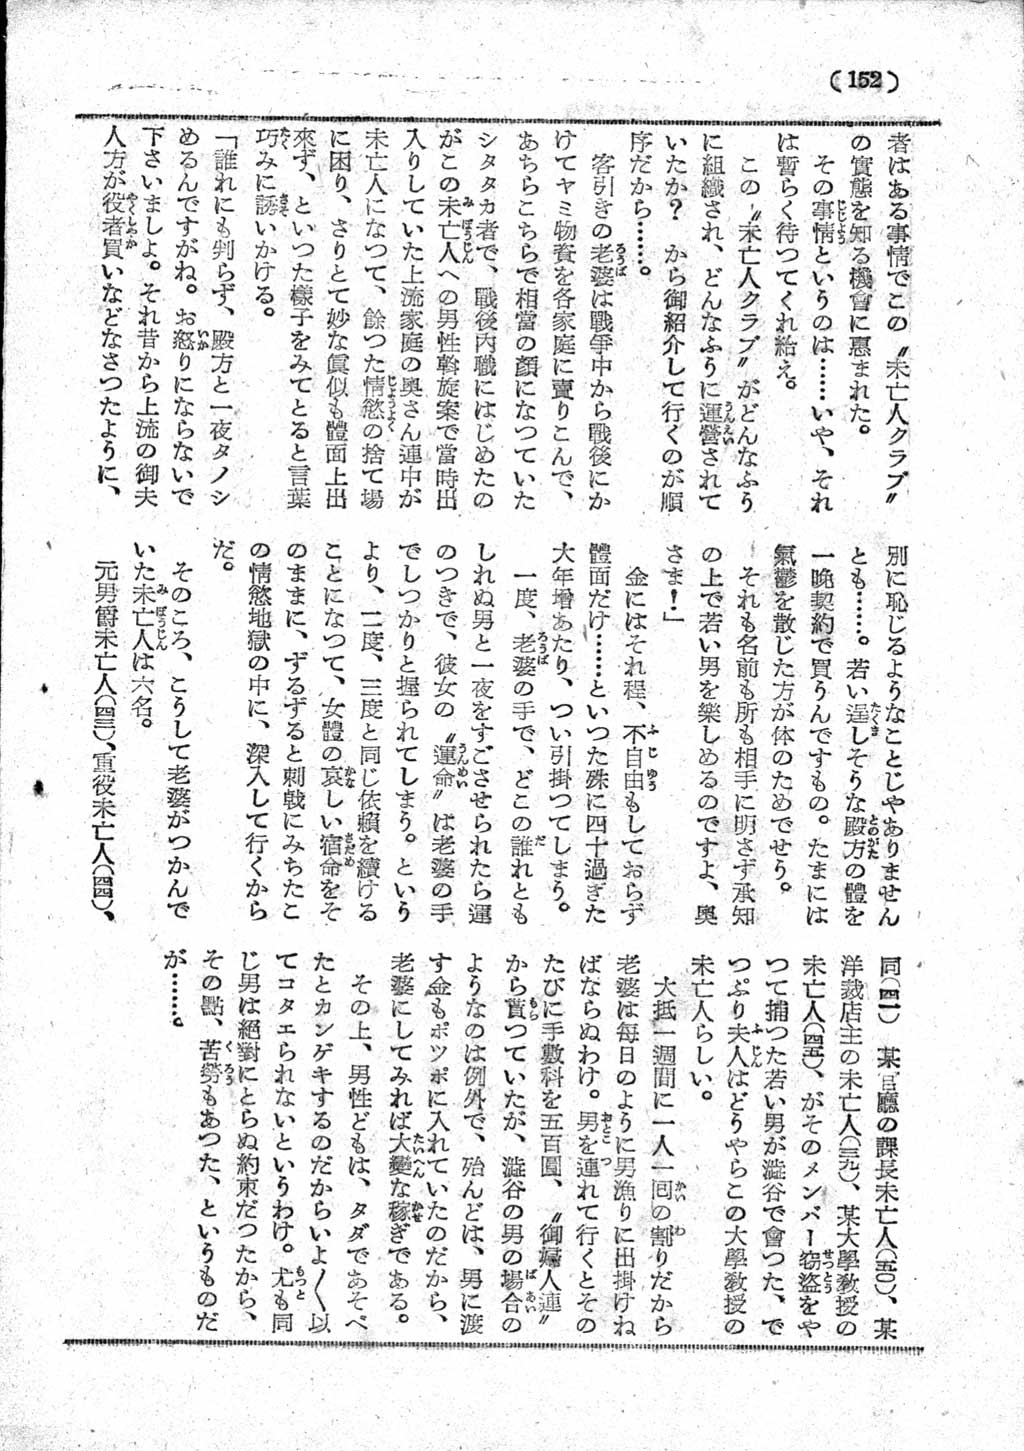 (152)
者はある事情でこの〝未亡人クラブ〟
の實態を知る機會に惠まれた。
その事情というのは……いや、それ
は暫らく待つてくれ給え。
この〝未亡人クラブ〟がどんなふう
に組織され、どんなふうに運營されて
いたか？　から御紹介して行くのが順
序だから……。
客引きの老婆は戰爭中から戰後にか
けてヤミ物資を各家庭に賣りこんで、
あちらこちらで相當の顏になつていた
シタタカ者で、戰後内職にはじめたの
がこの未亡人への男性斡旋案で當時出
入りしていた上流家庭の奥さん連中が
未亡人になつて、餘つた情慾の捨て場
に困り、さりとて妙な眞似も體面上出
來ず、といつた樣子をみてとると言葉
巧みに誘いかける。
「誰れにも判らず、殿方と一夜タノシ
めるんですがね。お怒りにならないで
下さいましよ。それ昔から上流の御夫
人方が役者買いなどなさつたように、
別に恥じるようなことじやありません
とも……。若い逞しそうな殿方の體を
一晩契約で買うんですもの。たまには
氣鬱を散じた方が体のためでせう。
それも名前も所も相手に明さず承知
の上で若い男を樂しめるのですよ、奥
さま！」
金にはそれ程、不自由もしておらず
體面だけ……といつた殊に四十過ぎた
大年增あたり、つい引掛つてしまう。
一度、老婆の手で、どこの誰れとも
しれぬ男と一夜をすごさせられたら運
のつきで、彼女の〝運命〟は老婆の手
でしつかりと握られてしまう。という
より、二度、三度と同じ依賴を續ける
ことになつて、女體の哀しい宿命をそ
のままに、ずるずると刺戟にみちたこ
の情慾地獄の中に、深入して行くから
だ。
そのころ、こうして老婆がつかんで
いた未亡人は六名。
元男爵未亡人（四三）、重役未亡人（四四）、
同（四一）　某官廳の課長未亡人（五〇）、某
洋裁店主の未亡人（三九）、某大學敎授の
未亡人（四五）、がそのメンバー窃盜をや
つて捕つた若い男が澁谷で會つた、で
つぷり夫人はどうやらこの大學敎授の
未亡人らしい。
大抵一週間に一人一囘の割りだから
老婆は每日のように男漁りに出掛けね
ばならぬわけ。男を連れて行くとその
たびに手數料を五百圓、〝御婦人連〟
から貰つていたが、澁谷の男の場合の
ようなのは例外で、殆んどは、男に渡
す金もポツポに入れていたのだから、
老婆にしてみれば大變な稼ぎである。
その上、男性どもは、タダであそべ
たとカンゲキするのだからいよ〱以
てコタエられないというわけ。尤も同
じ男は絕對にとらぬ約束だつたから、
その點、苦勞もあつた、というものだ
が……。